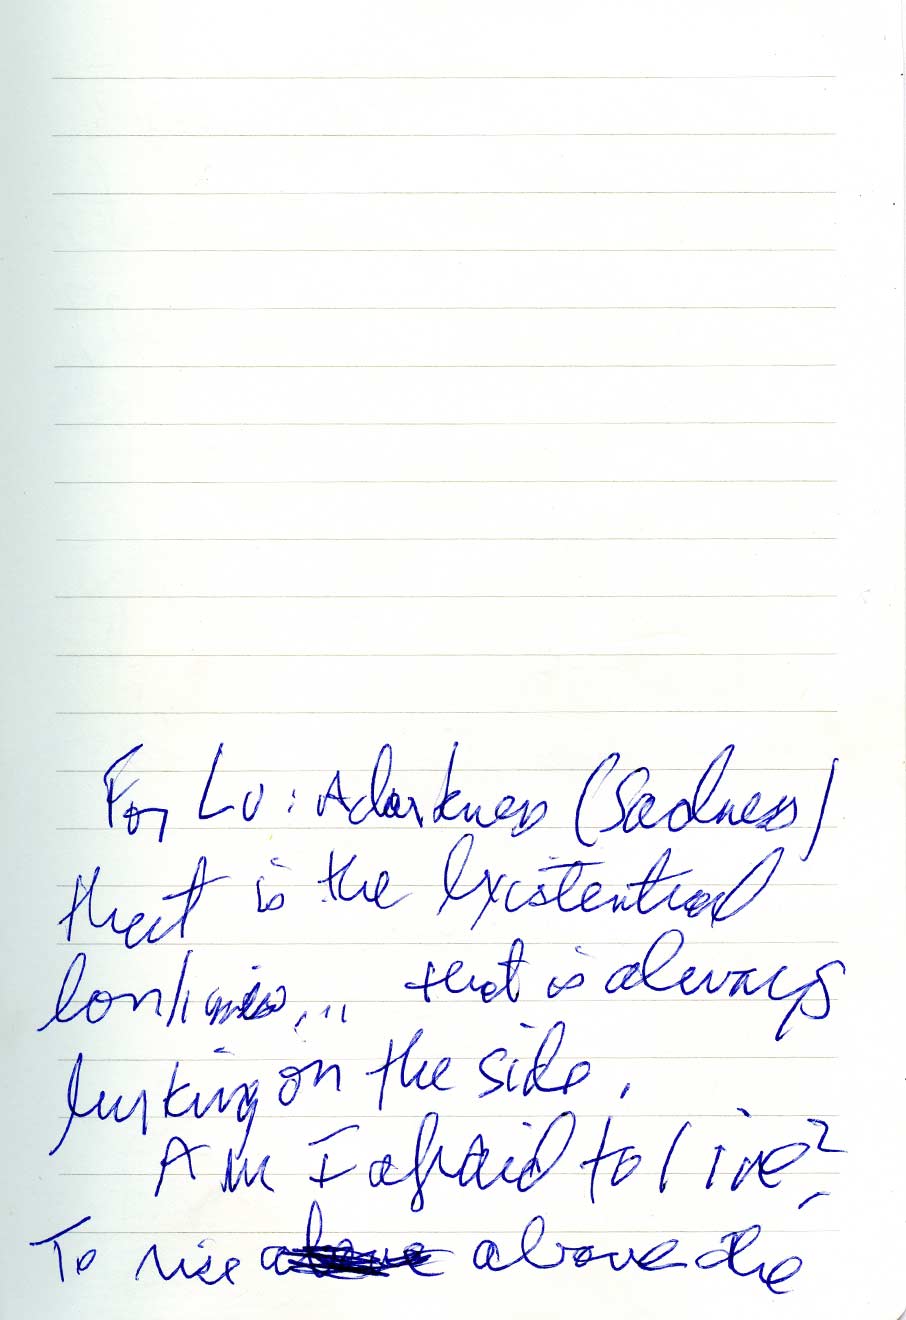 For Lu: A darkness (Sadness)
that is the existential
lonliness... that is always
lurking on the side.
Am I afraid to live?
To rise above above the